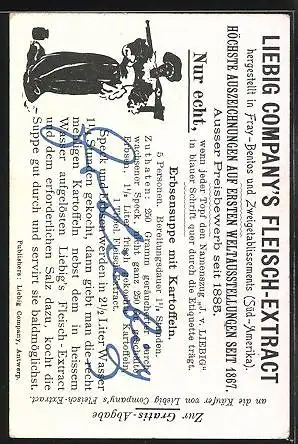 LIEBIG COMPANY'S FLEISCH-EXTRACT
hergestellt in Fray-Bentos und Zweigetablissements (Süd-Amerika).
HÖCHSTE AUSZEICHNUNGEN AUF ERSTEN WELTAUSSTELLUNGEN SEIT 1867.
Ausser Preisbewerb seit 1885.
Nur echt,
wenn jeder Topf den Namenszug „J. v. LIEBIG"
in blauer Schrift quer durch die Etiquette trägt.
Erbsensuppe mit Kartoffeln.
5 Personen. Bereitungsdauer 1¼ Stunden.
Zuthaten: 250 Gramm
wachsener Speck, ganz
Erbsen, 1½ Liter gekochte Kartoffeln,
Löffel Fleisch-Extract.
Speck und werden in 2½ Liter Wasser
1¼ Stunden gekocht, dann giebt man die recht
mehligen Kartoffeln nebst dem in heissem
Wasser aufgelösten Liebig's Fleisch-Extract
und dem erforderlichen Salz dazu, kocht die
Suppe gut durch und servirt sie baldmöglichst.
Publishers: Liebig Company, Antwerp.
Zur Gratis-Abgabe
an die Käufer von Liebig Company's Fleisch-Extract.